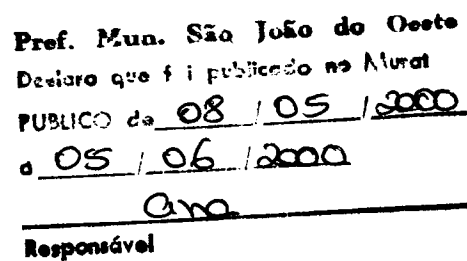 Pref. Mun. São João do Oeste
Declaro que f i publicado no Mural
PUBLICO de 08 / 05 / 2000
a 05 / 06 / 2000
Ana
Responsável